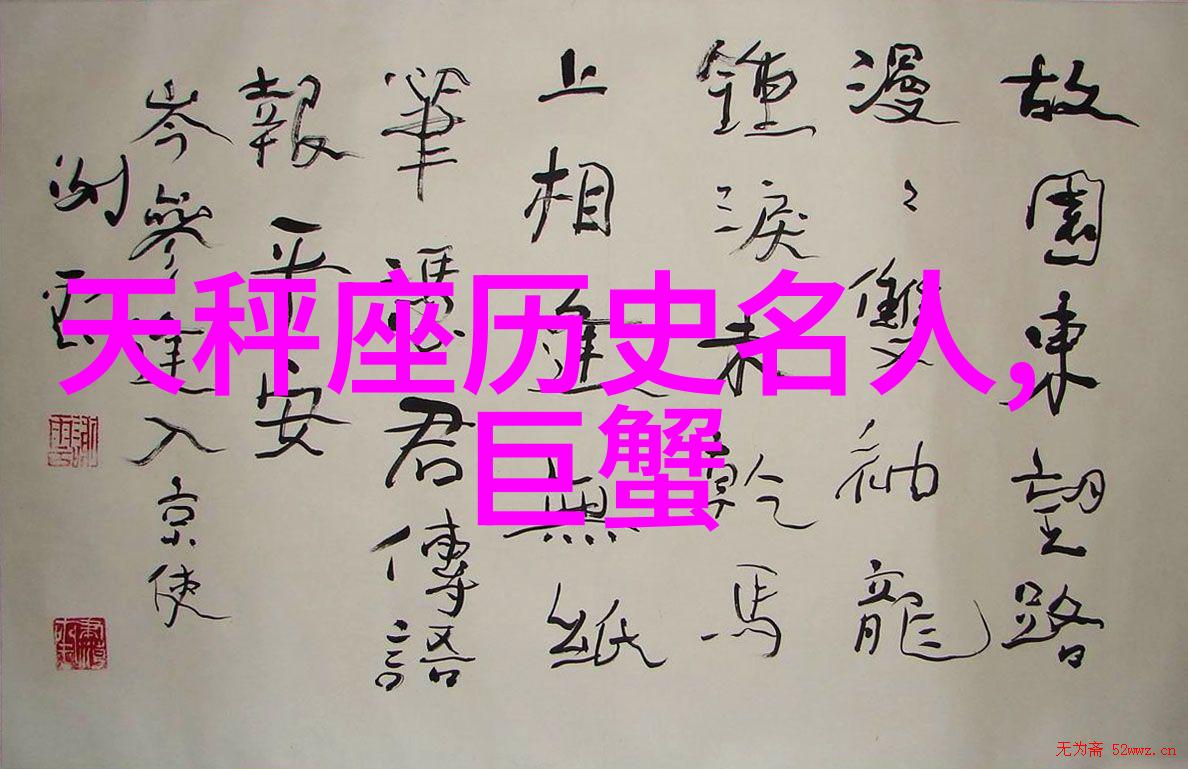 天秤座历史名人,
巨蟹
故園東望路
漫〻雙袖龍
鍾淚未乾馬
上相逢無紙
筆憑君傳語
報平安
岑參逢入京使
无为斋 52wwz.cn